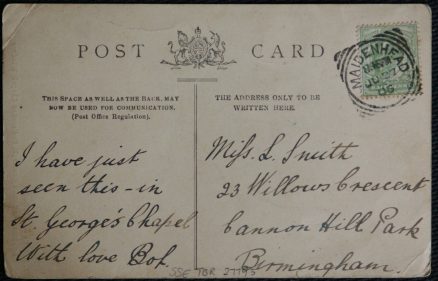 POST CARD
THIS SPACE AS WELL AS THE BACK, MAY
NOW BE USED FOR COMMUNICATION.
(Post Office Regulation).
THE ADDRESS ONLY TO BE
WRITTEN HERE.
MAIDENHEAD
I have just
seen this - in
St. George's Chapel
With love Bob.
Miss. L. Smith
23 Willows Crescent
Cannon Hill Park
Birmingham.
SSE TBR